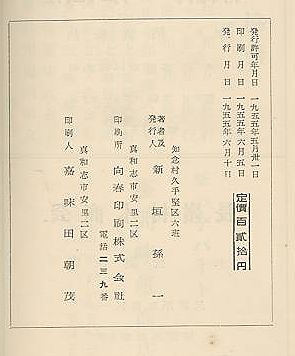 発行許可年月日　一九五五年五月卅一日
印刷月日　一九五五年六月五日
発行月日　一九五五年六月十日
定價百貳拾円
知念村久手堅区六班
著者及発行人　新垣孫一
真和志市安里二区
印刷所　向春印刷株式会社
電話二三九番
真和志市安里二区
印刷人　嘉味田朝茂